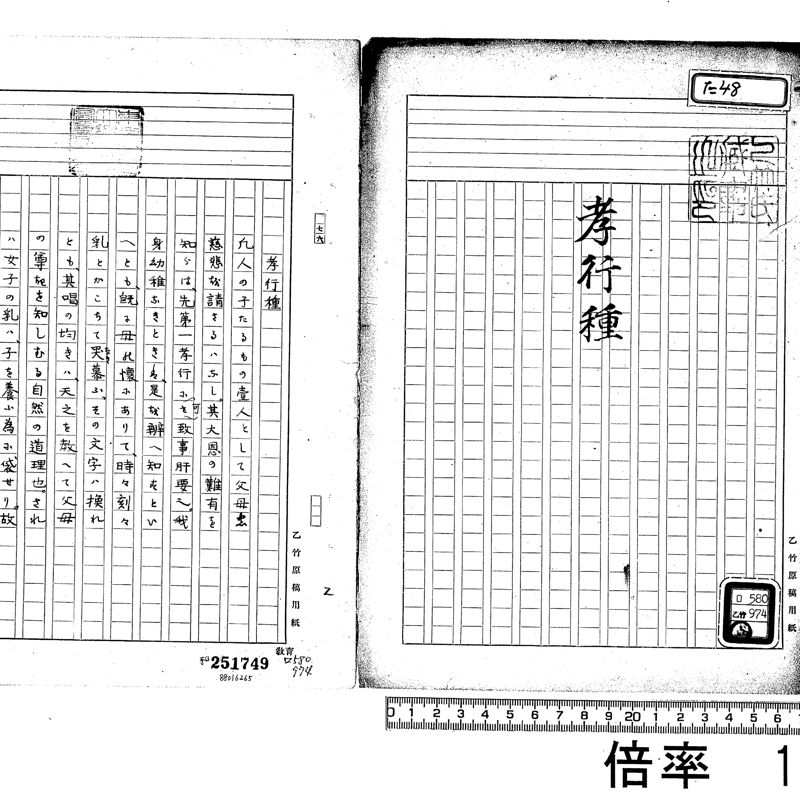 た48
孝行種
乙竹原稿用紙
ロ 580
乙竹 974
孝行種
凡人の子たるもの壹人として父母の
慈悲を請ざるハなし。其大恩の難有を
知らは、先第一孝行を致事肝要也。我
身幼稚なきときハ、是を辨へ知らずとい
へとも、既に母の懐にありて、時々刻々
乳とかこちて哭慕ふ。その文字ハ換れ
とも、其唱の均きハ、天之を教へて父母
の尊を知しむる自然の道理也。され
ハ女子の乳ハ、子を養ふ為に袋せり。故
七六
乙竹原稿用紙
251749
88016265
教育
ロ580
974
0 1 2 3 4 5 6 7 8 9 20 1 2 3 4 5 6
倍率 1